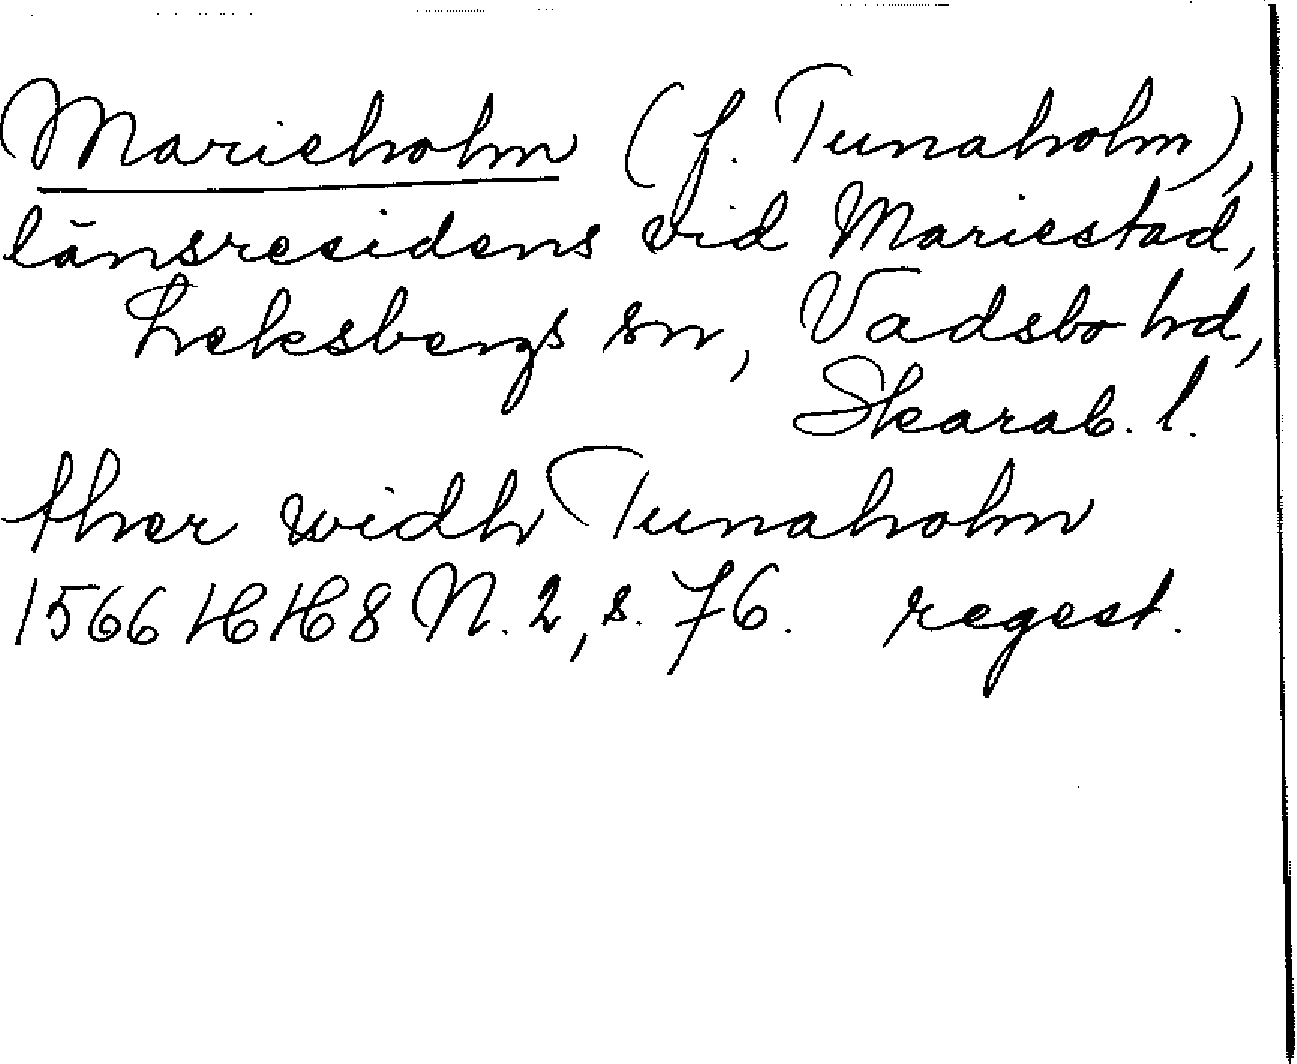 Marieholm (f. Tunaholm),
länsresidens vid Mariestad,
Leksbergs sn, Vadsbo hd,
Skarab. l.
ther widh Tunaholm
1566 HH 8 N. 2, s. 76. regest.